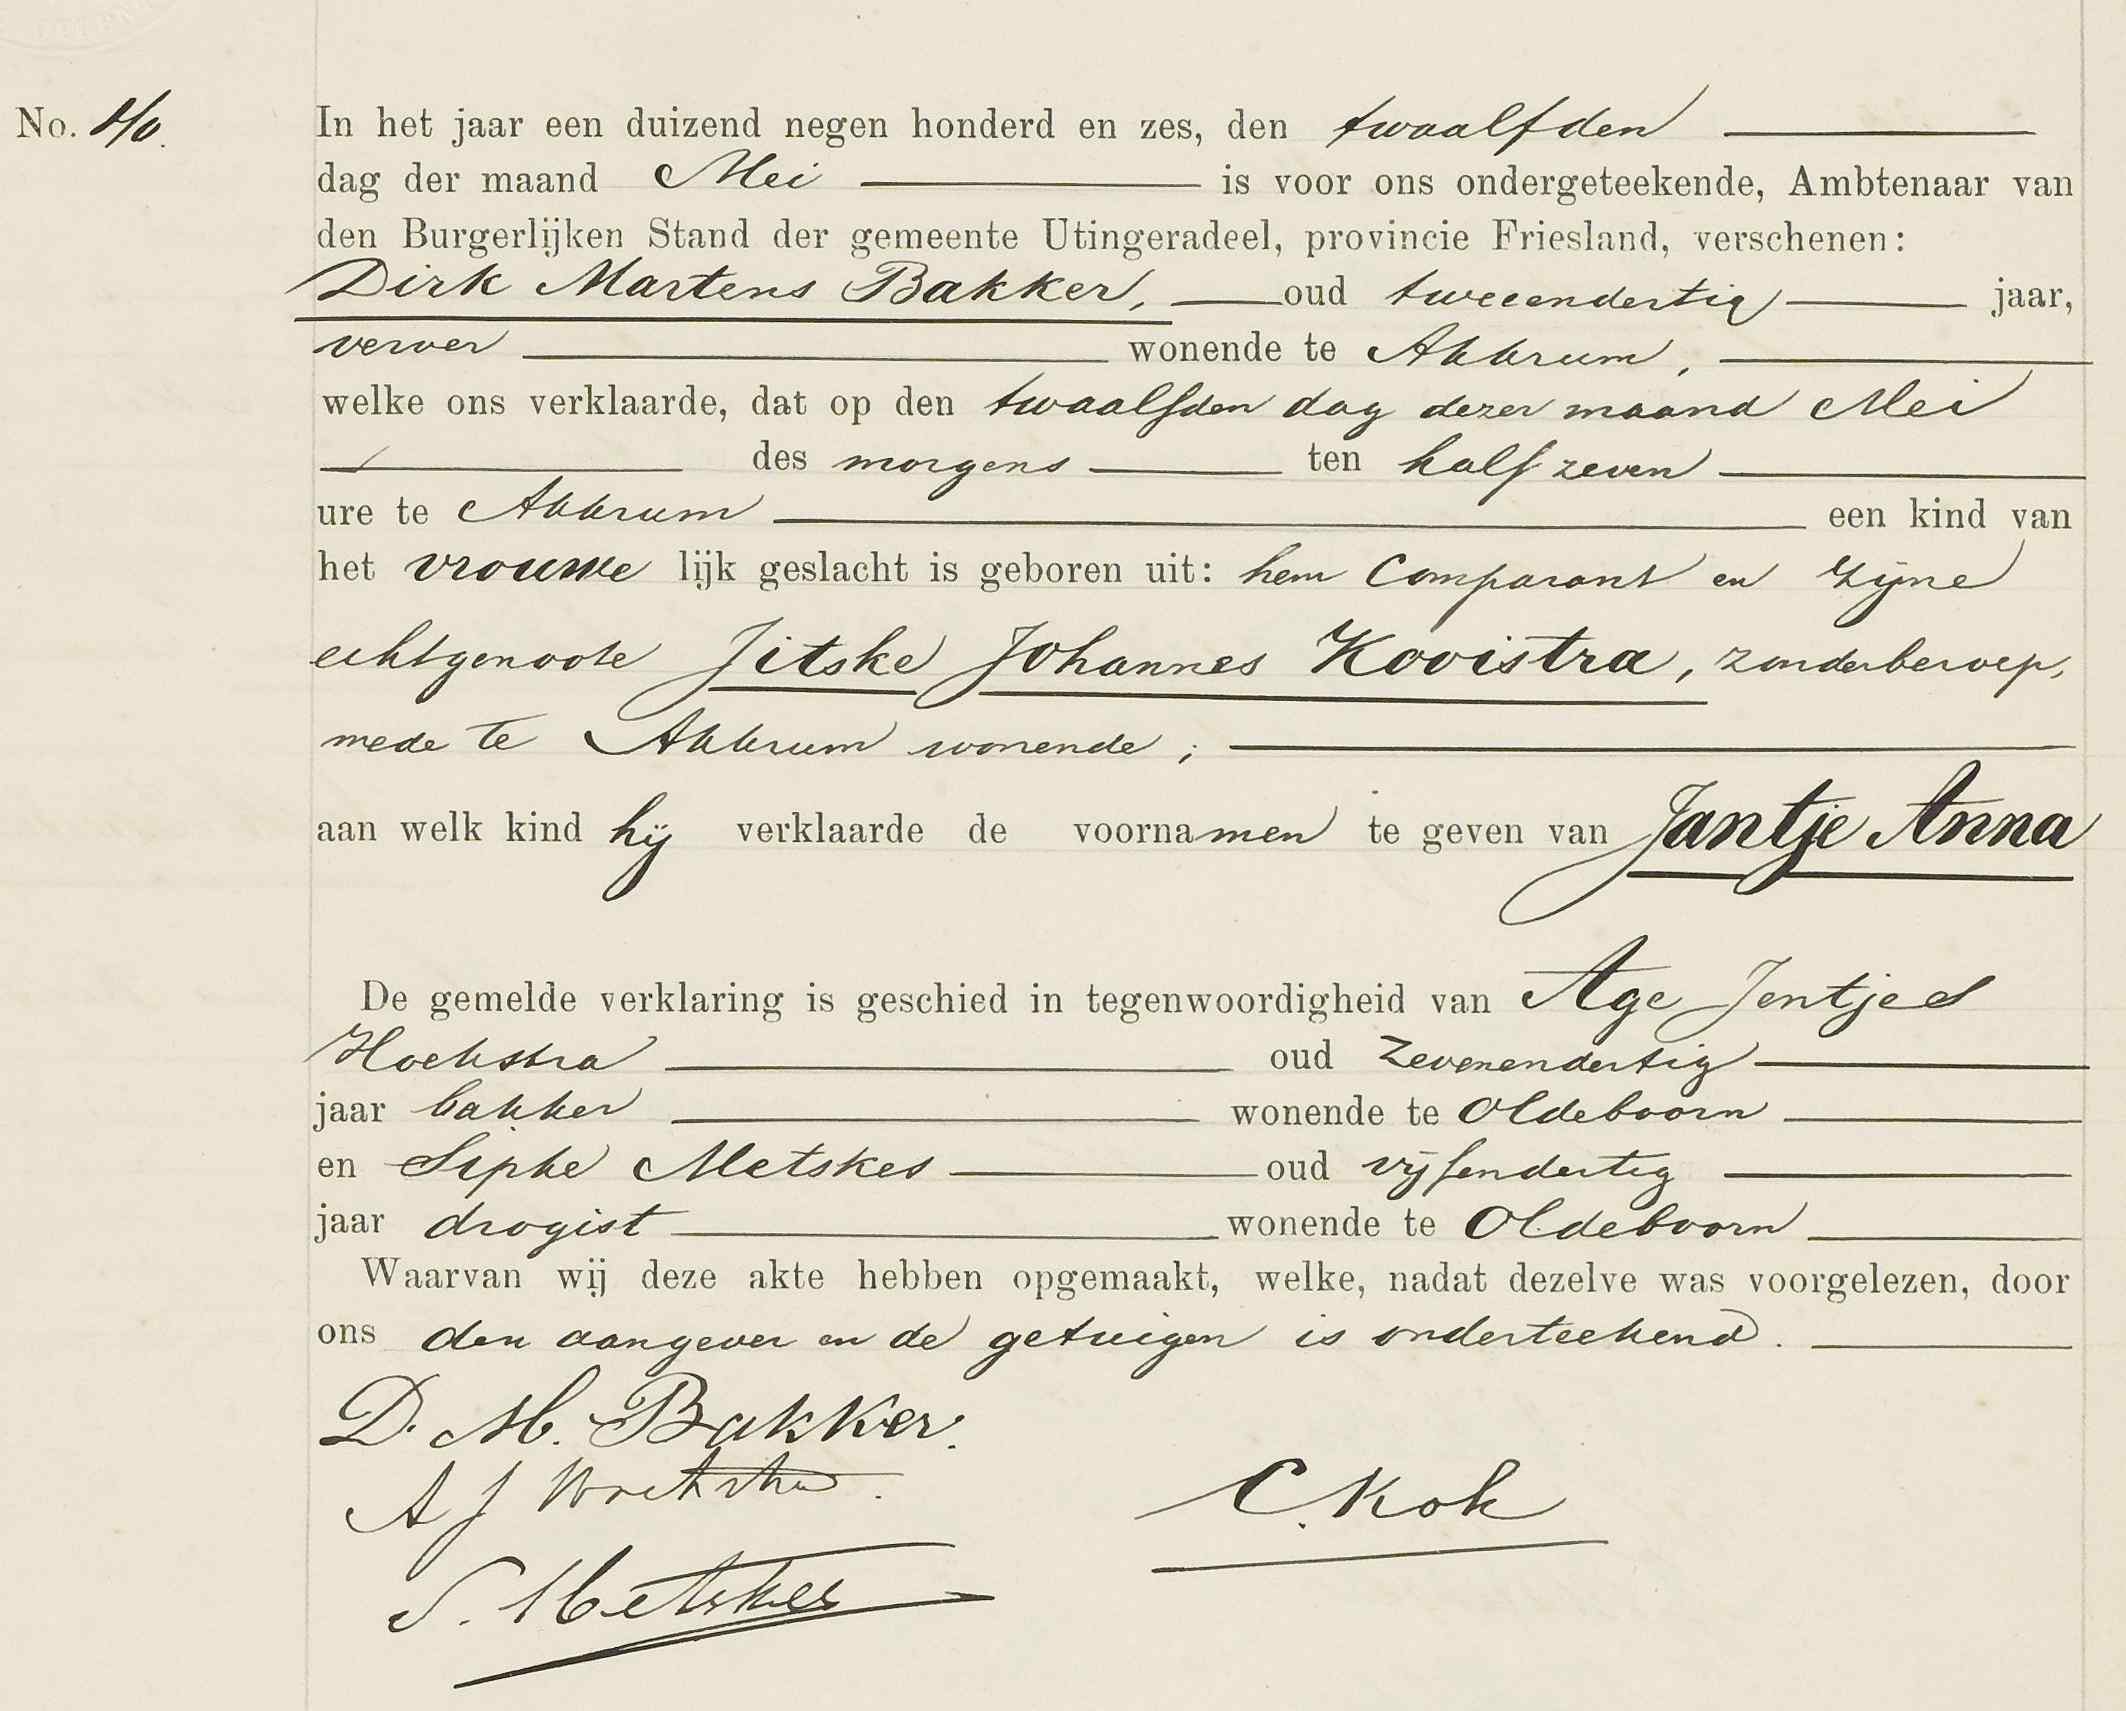 No. 40.
In het jaar een duizend negen honderd en zes, den twaalfden
dag der maand Mei is voor ons ondergeteekende, Ambtenaar van
den Burgerlijken Stand der gemeente Utingeradeel, provincie Friesland, verschenen:
Dirk Martens Bakker, oud tweeendertig jaar,
verver wonende te Akkrum,
welke ons verklaarde, dat op den twaalfden dag dezer maand Mei
des morgens ten half zeven
ure te Akkrum een kind van
het vrouwe lijk geslacht is geboren uit: hem Comparant en zijne
echtgenoote Jitske Johannes Kooistra, zonder beroep,
mede te Akkrum wonende;
aan welk kind hij verklaarde de voornamen te geven van Jantje Anna
De gemelde verklaring is geschied in tegenwoordigheid van Age Jentjes
Hoekstra oud zevenendertig
jaar bakker wonende te Oldeboorn
en Sipke Metskes oud vijfendertig
jaar drogist wonende te Oldeboorn
Waarvan wij deze akte hebben opgemaakt, welke, nadat dezelve was voorgelezen, door
ons den aangever en de getuigen is onderteekend.
D. M. Bakker.
A J Hoekstra.
C. Kok
S. Metskes